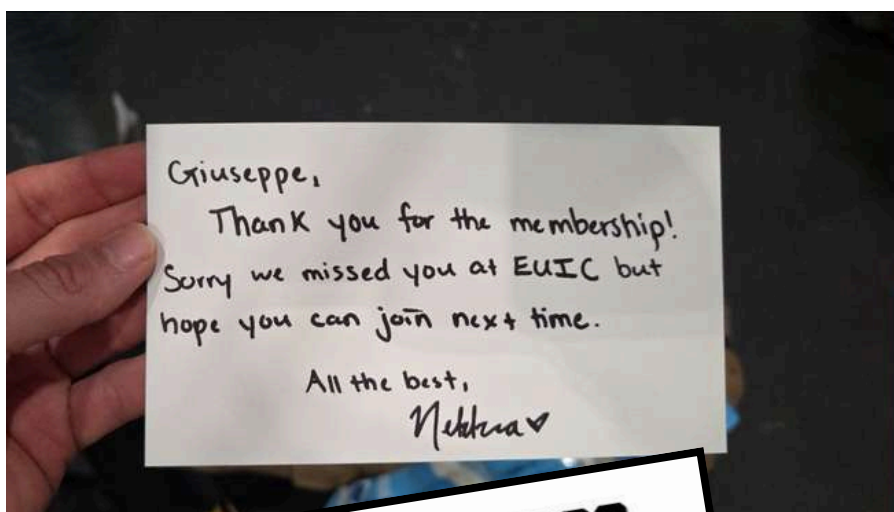 Giuseppe,
Thank you for the membership!
Sorry we missed you at EUIC but
hope you can join next time.
All the best,